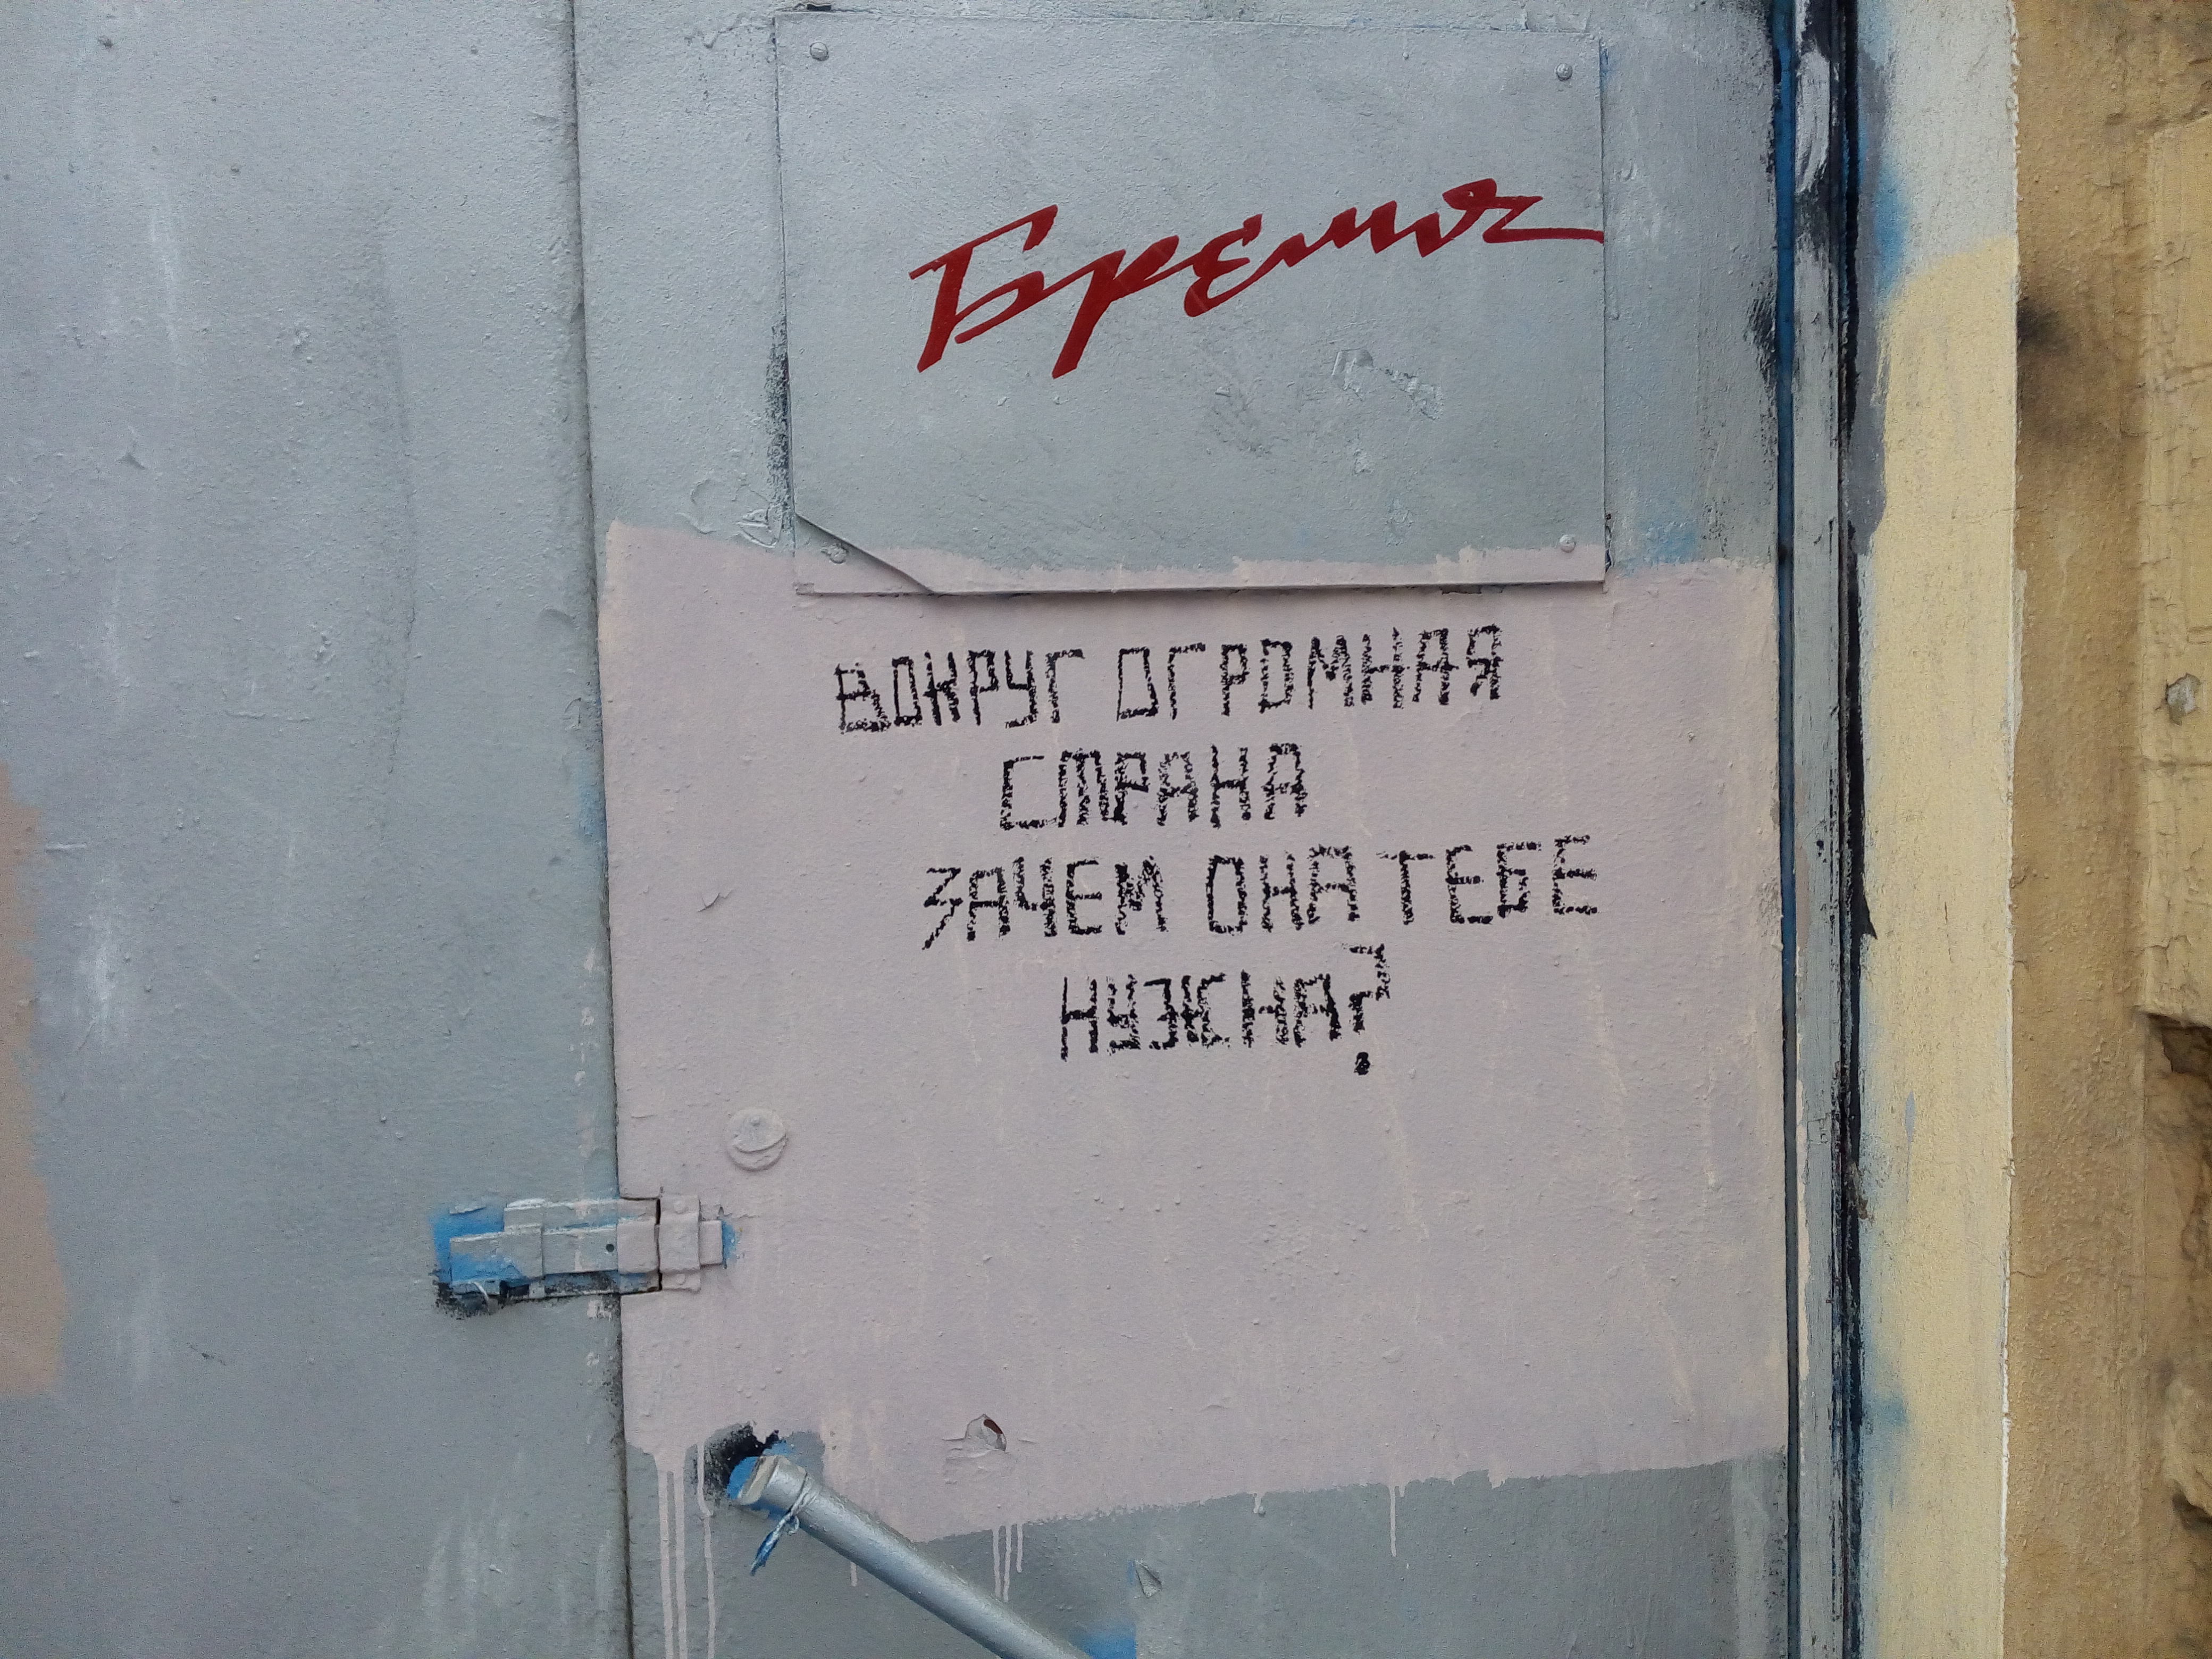 Бремя
ВОКРУГ ОГРОМНАЯ
СТРАНА
ЗАЧЕМ ОНА ТЕБЕ
НУЖНА?